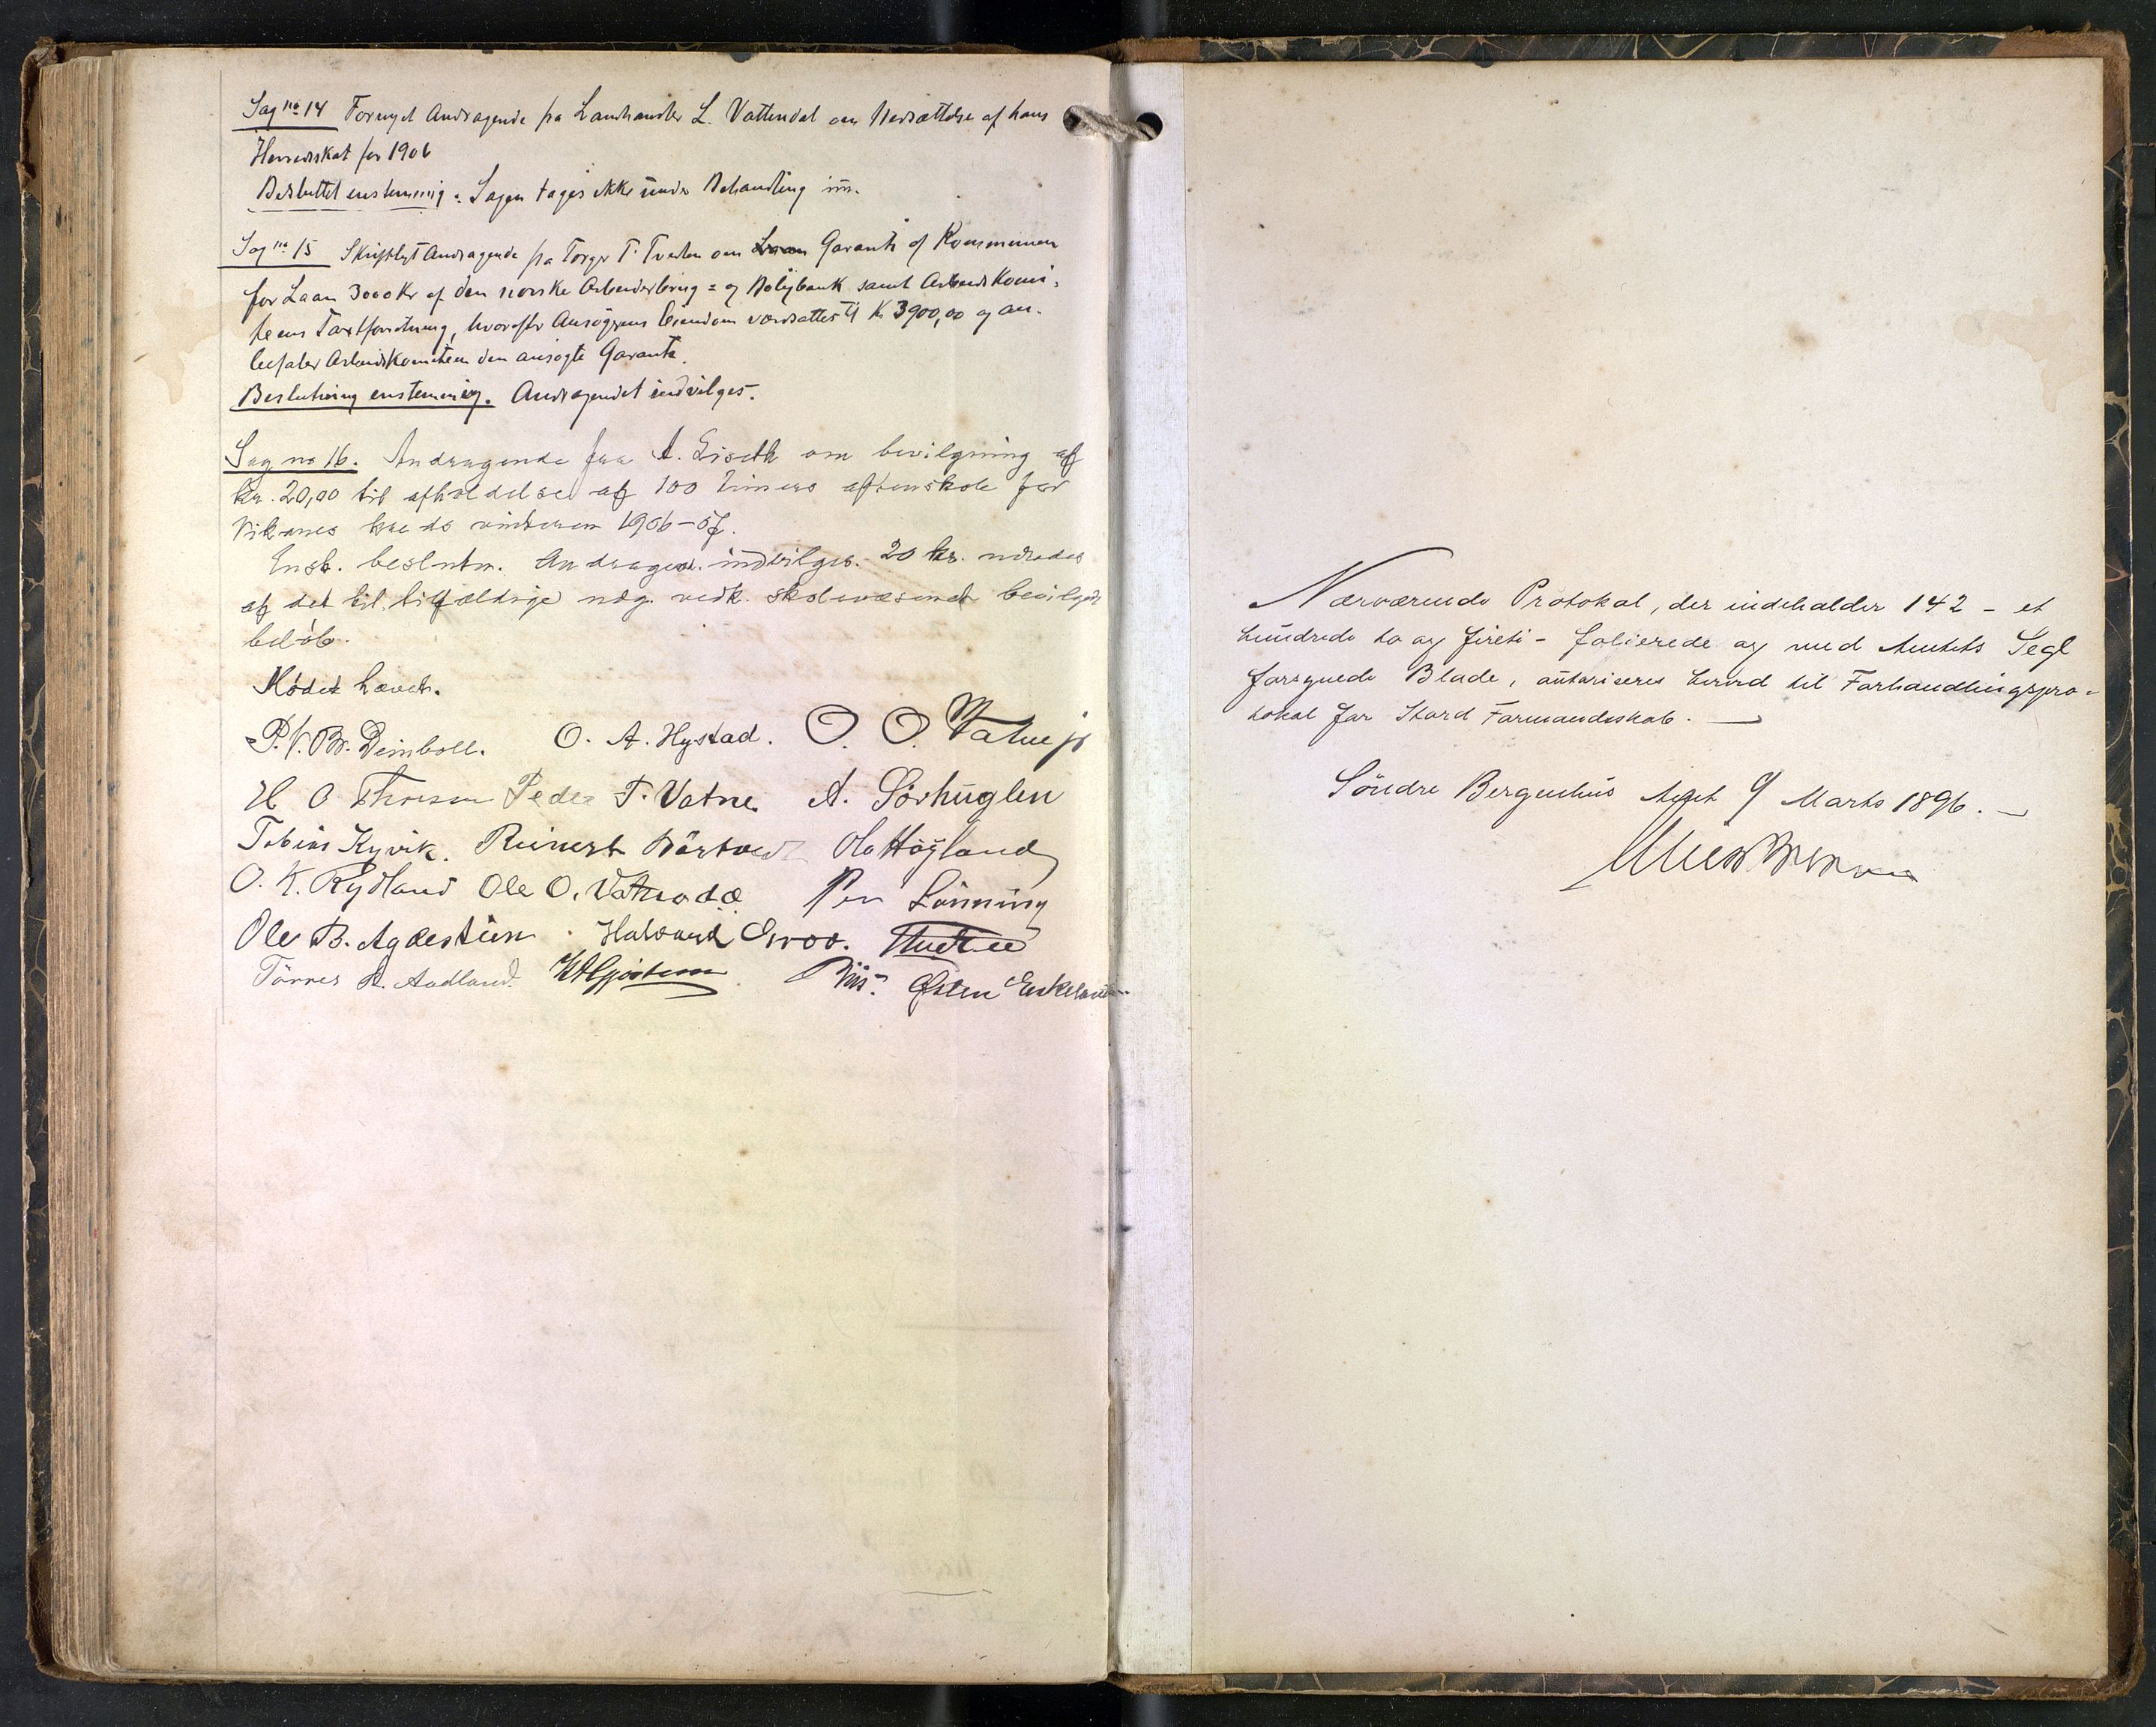 Sag no 14 Fornyet Andragende fra Landhandler L. Vattendal om Nedsættelse af hans
Herredsskat for 1906
Besluttet enstemmig: Sagen tages ikke under Behandling
Sag no 15 Skriftligt Andragende fra Torger T. Tveiten om Laan Garanti af Kommunen
for Laan 3000 Kr af den norske Arbeiderbrug = og Boligbank samt Arbeidskomi-
teens Taxtforretning, hvorefter Ansøgerens Eiendom værdsættes til Kr 3900,00 og an-
befaler Arbeidskomiteen den ansøgte Garanti.
Beslutning enstemmig. Andragendet indvilges.
Sag no 16. Andragende fra A. Liseth om bevilgning af
kr. 20,00 til afholdelse af 100 timers aftenskole for
Vikanes kreds vinteren 1906-07.
Enst. beslutn. Andragen. indvilges. 20 kr. udredes
af det til tilfældige udg. vedk. skolevæsenet bevilgede
beløb.
Mødet hævet.
P. V. Br. Deinboll. O. A. Hystad. O. O. Vatne jr
H O Thorsen Peder T. Vatne A. Sørhuglen
Tobias Kyvik. Reinert Bårtvedt Ola Høyland
O. K. Rydland Ole O. Vatnadæ Per Lønning
Ole B. Agdestein. Halvard Grov.
Tørres A. Aadland. Østen Eskeland
Nærværende Protokol, der indeholder 142 - et
hundrede to og firti - folierede og med Amtets Segl
forsynede Blade, autoriseres herved til Forhandlingspro-
tokol for Stord Formandsskab. —
Søndre Bergenhus Amt 9 Marts 1896. —